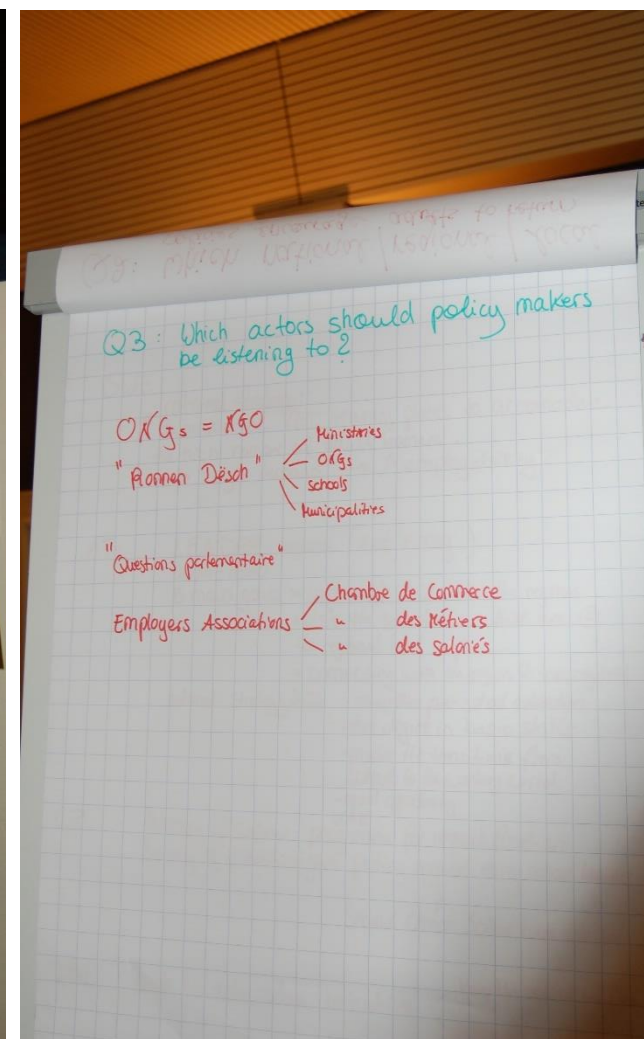 Q3: Which actors should policy makers
be listening to?
ONGs = NGO
"Ronnen Dësch"
Ministries
ONGs
schools
Municipalities
"Questions parlementaire"
Employers Associations
Chambre de Commerce
" des Métiers
" des Salariés